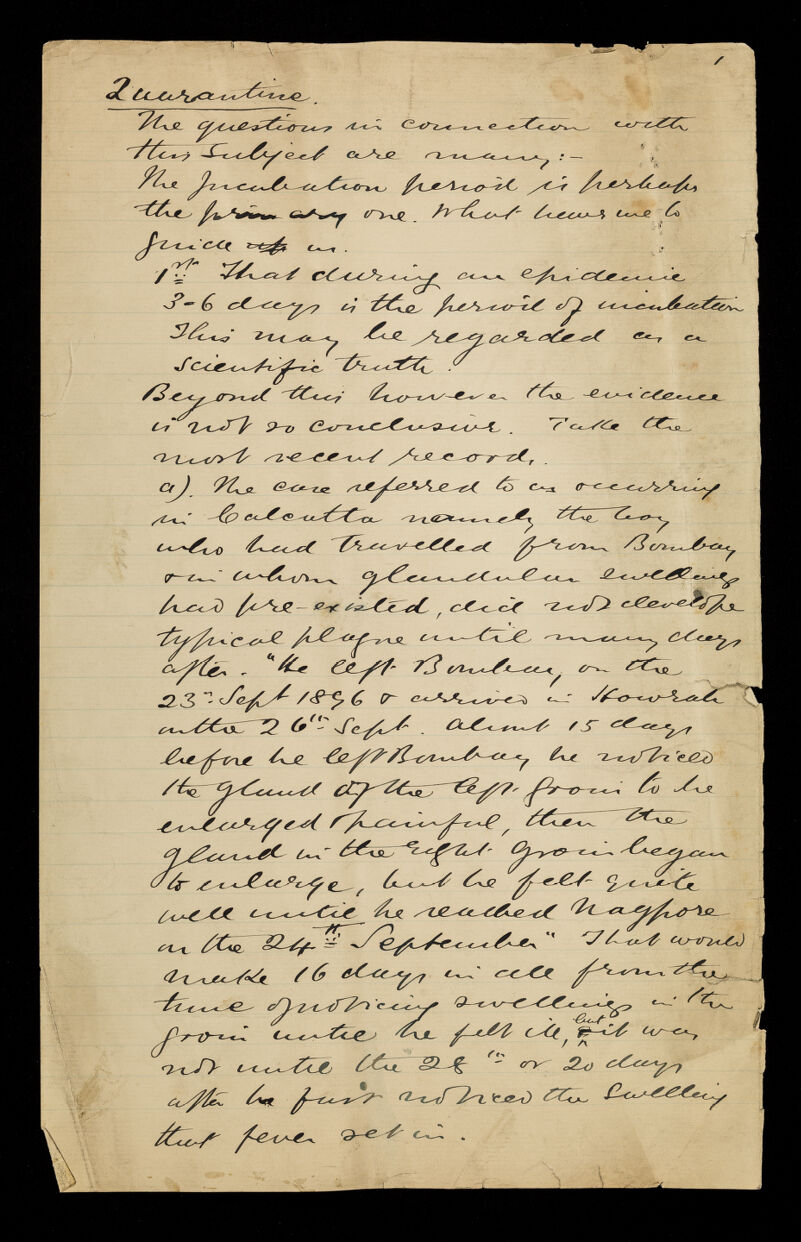 1
Quarantine.
The questions in connection with
this subject are many:-
The Incubation period is perhaps
the primary one. What have we to
guide us.
1st That during an epidemic
3-6 days is the period of incubation
This may be regarded as a
scientific truth.
Beyond this however the evidence
is not so conclusive. Take the
most recent records.
a). The case referred to as occurring
in Calcutta namely the boy
who had travelled from Bombay
& in whom glandular swellings
had pre-existed, did not develope
typical plague until many days
after. "He left Bombay on the
23rd Sept 1896 & arrived in Howrah
on the 26th Sept. About 15 days
before he left Bombay he noticed
the gland of the left groin to be
enlarged & painful, then the
gland in the right groin began
to enlarge, but he felt quite
well until he reached Nagpore
on the 24th September" That would
make 16 days in all from the
time of noticing swellings in the
groin until he felt ill, but it was
not until the 28th or 20 days
after he first noticed the swelling
that fever set in.